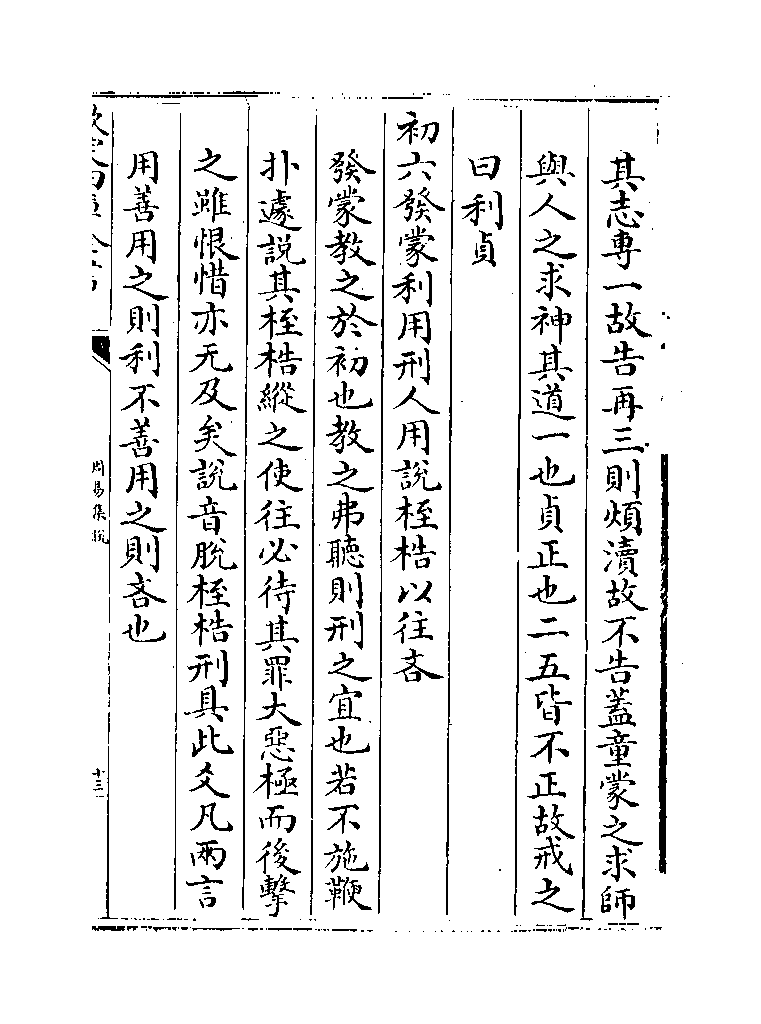 其志専一故告再三則煩瀆故不告蓋童蒙之求師
與人之求神其道一也貞正也二五皆不正故戒之
曰利貞
初六發蒙利用刑人用說桎梏以往吝
發蒙教之於初也教之弗聽則刑之宜也若不施鞭
扑遽說其桎梏縱之使往必待其罪大惡極而後擊
之雖恨惜亦无及矣說音脫桎梏刑具此爻凡兩言
用善用之則利不善用之則吝也
周易集說
十三